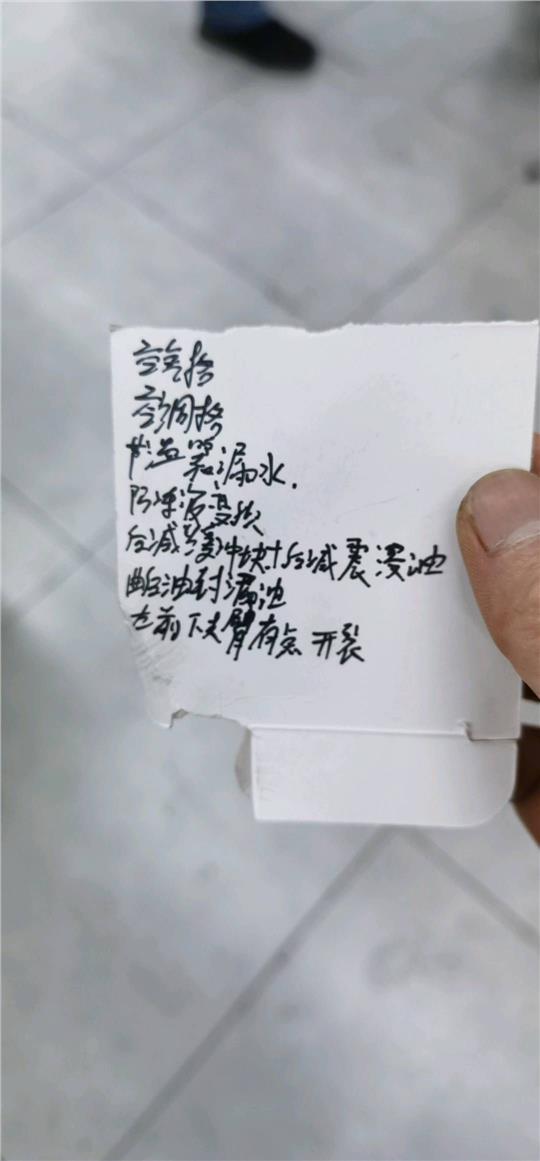 空气格
空调格
节温器漏水.
防冻液更换
后减缓冲块+后减震漫油
曲后油封漏油
左前下支臂有点开裂